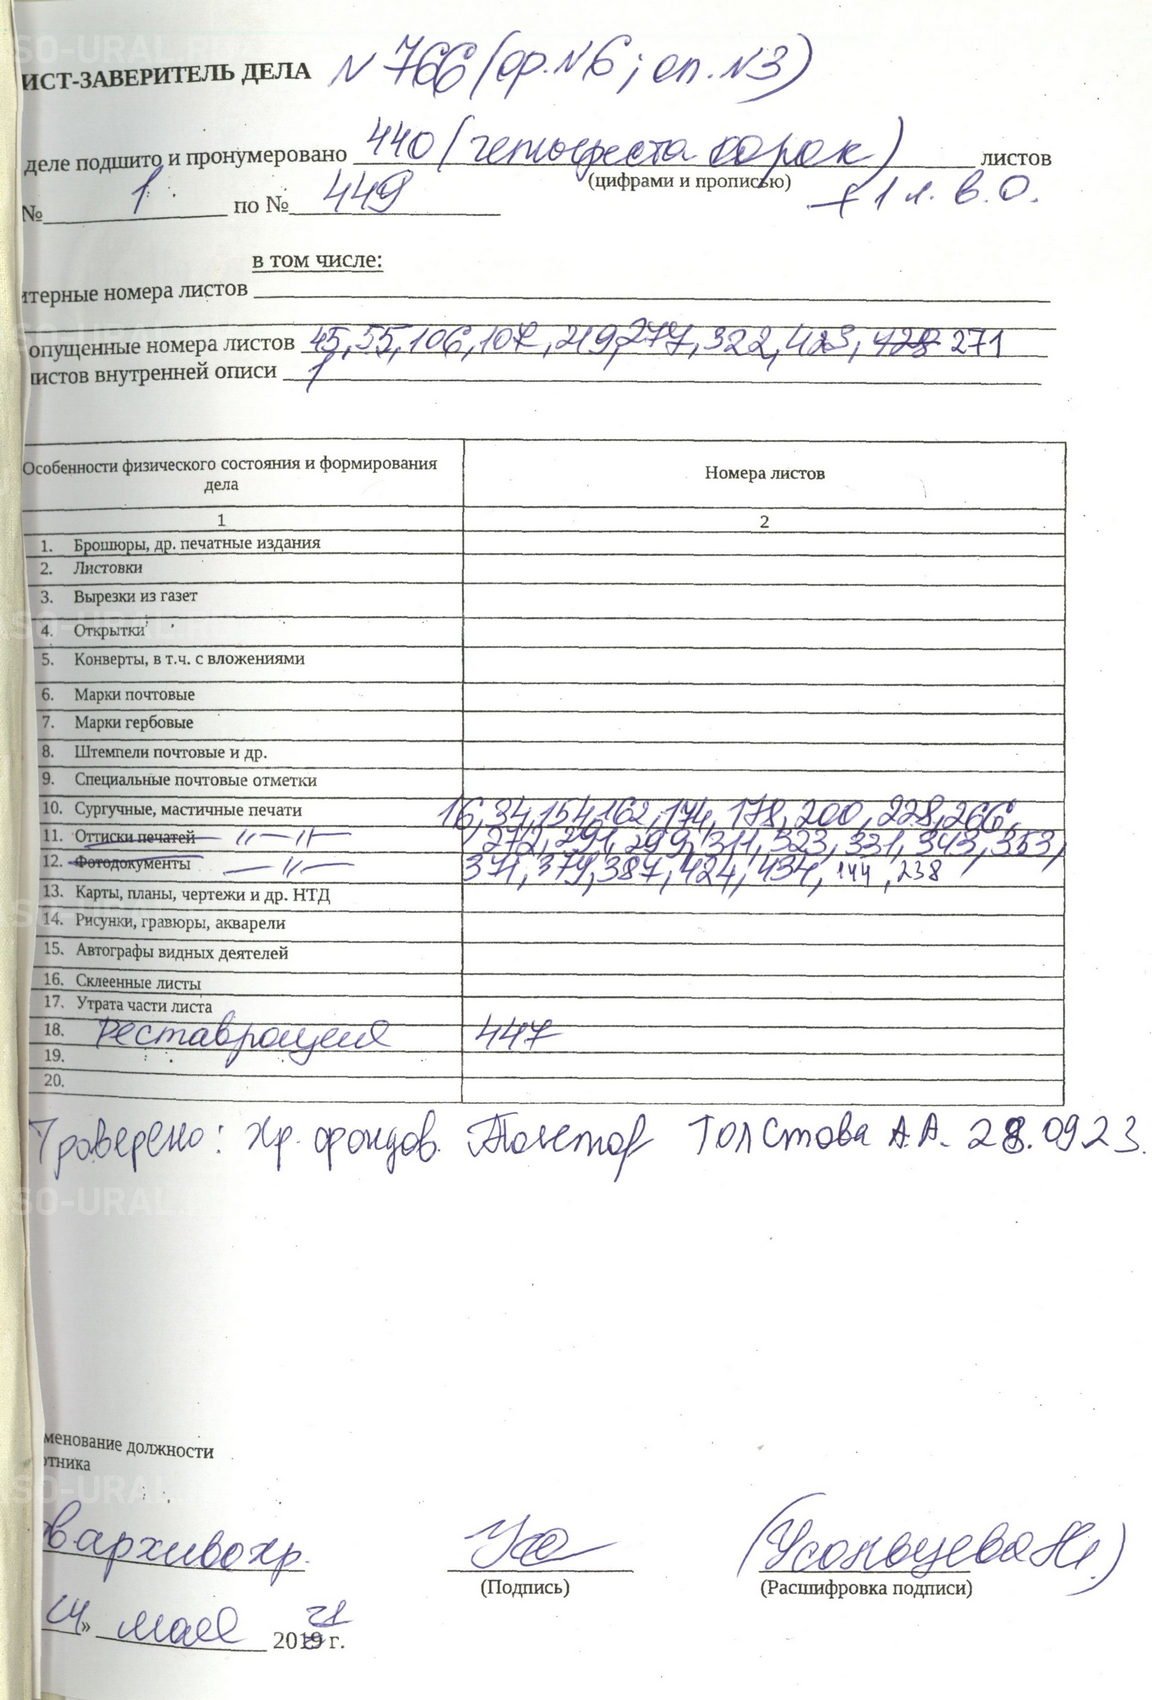 ИСТ-ЗАВЕРИТЕЛЬ ДЕЛА N 766 (ф. N 6; оп. N 3)
деле подшито и пронумеровано 440 (четыреста сорок) листов
(цифрами и прописью)
№ 1 по № 449 + 1 л. в.о.
в том числе:
итерные номера листов
опущенные номера листов 45, 55, 106, 107, 219, 277, 322, 423, 428 271
листов внутренней описи 1
Особенности физического состояния и формирования дела Номера листов
1 2
1. Брошюры, др. печатные издания
2. Листовки
3. Вырезки из газет
4. Открытки
5. Конверты, в т.ч. с вложениями
6. Марки почтовые
7. Марки гербовые
8. Штемпели почтовые и др.
9. Специальные почтовые отметки
10. Сургучные, мастичные печати 16, 34, 154, 162, 174, 178, 200, 228, 266,
11. Оттиски печатей –"–"– 272, 291, 299, 311, 323, 331, 343, 353,
12. Фотодокументы –"– 371, 379, 387, 424, 434, 144, 238
13. Карты, планы, чертежи и др. НТД
14. Рисунки, гравюры, акварели
15. Автографы видных деятелей
16. Склеенные листы
17. Утрата части листа
18. Реставрация 447
19.
20.
Проверено: хр. фондов Толстова А.А. 28.09 23.
менование должности
отника
архивохр.
(Подпись) (Расшифровка подписи)
(Усольцева Н.)
24» мая 2019 21 г.
ASO-URAL.RU